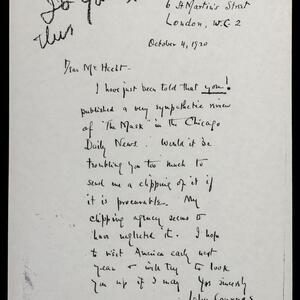 6 St Martin's Street
London, W.C 2
October 4, 1920
Dear Mr Hecht -
I have just been told that you!
published a very sympathetic review
of "The Mask" in the Chicago
Daily News. Would it be
troubling you too much to
send me a clipping of it if
it is procurable. My
clipping agency seems to
have neglected it. I hope
to visit America early next
year & will try to look
you up if I may
Yrs sincerely
John